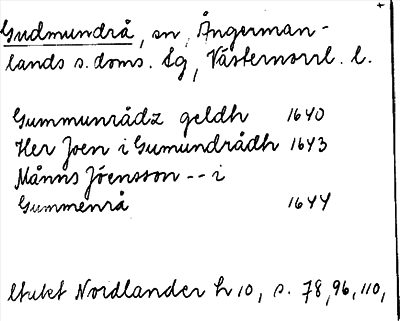 Gudmundrå, sn, Ångerman-
lands s. doms. lg, Västernorrl. l.
Gummunrådz geldh 1640
Her Joen i Gumundrådh 1643
Månns Jóensson -- i
Gummenrå 1644
Nordlander h 10, s. 78, 96, 110,